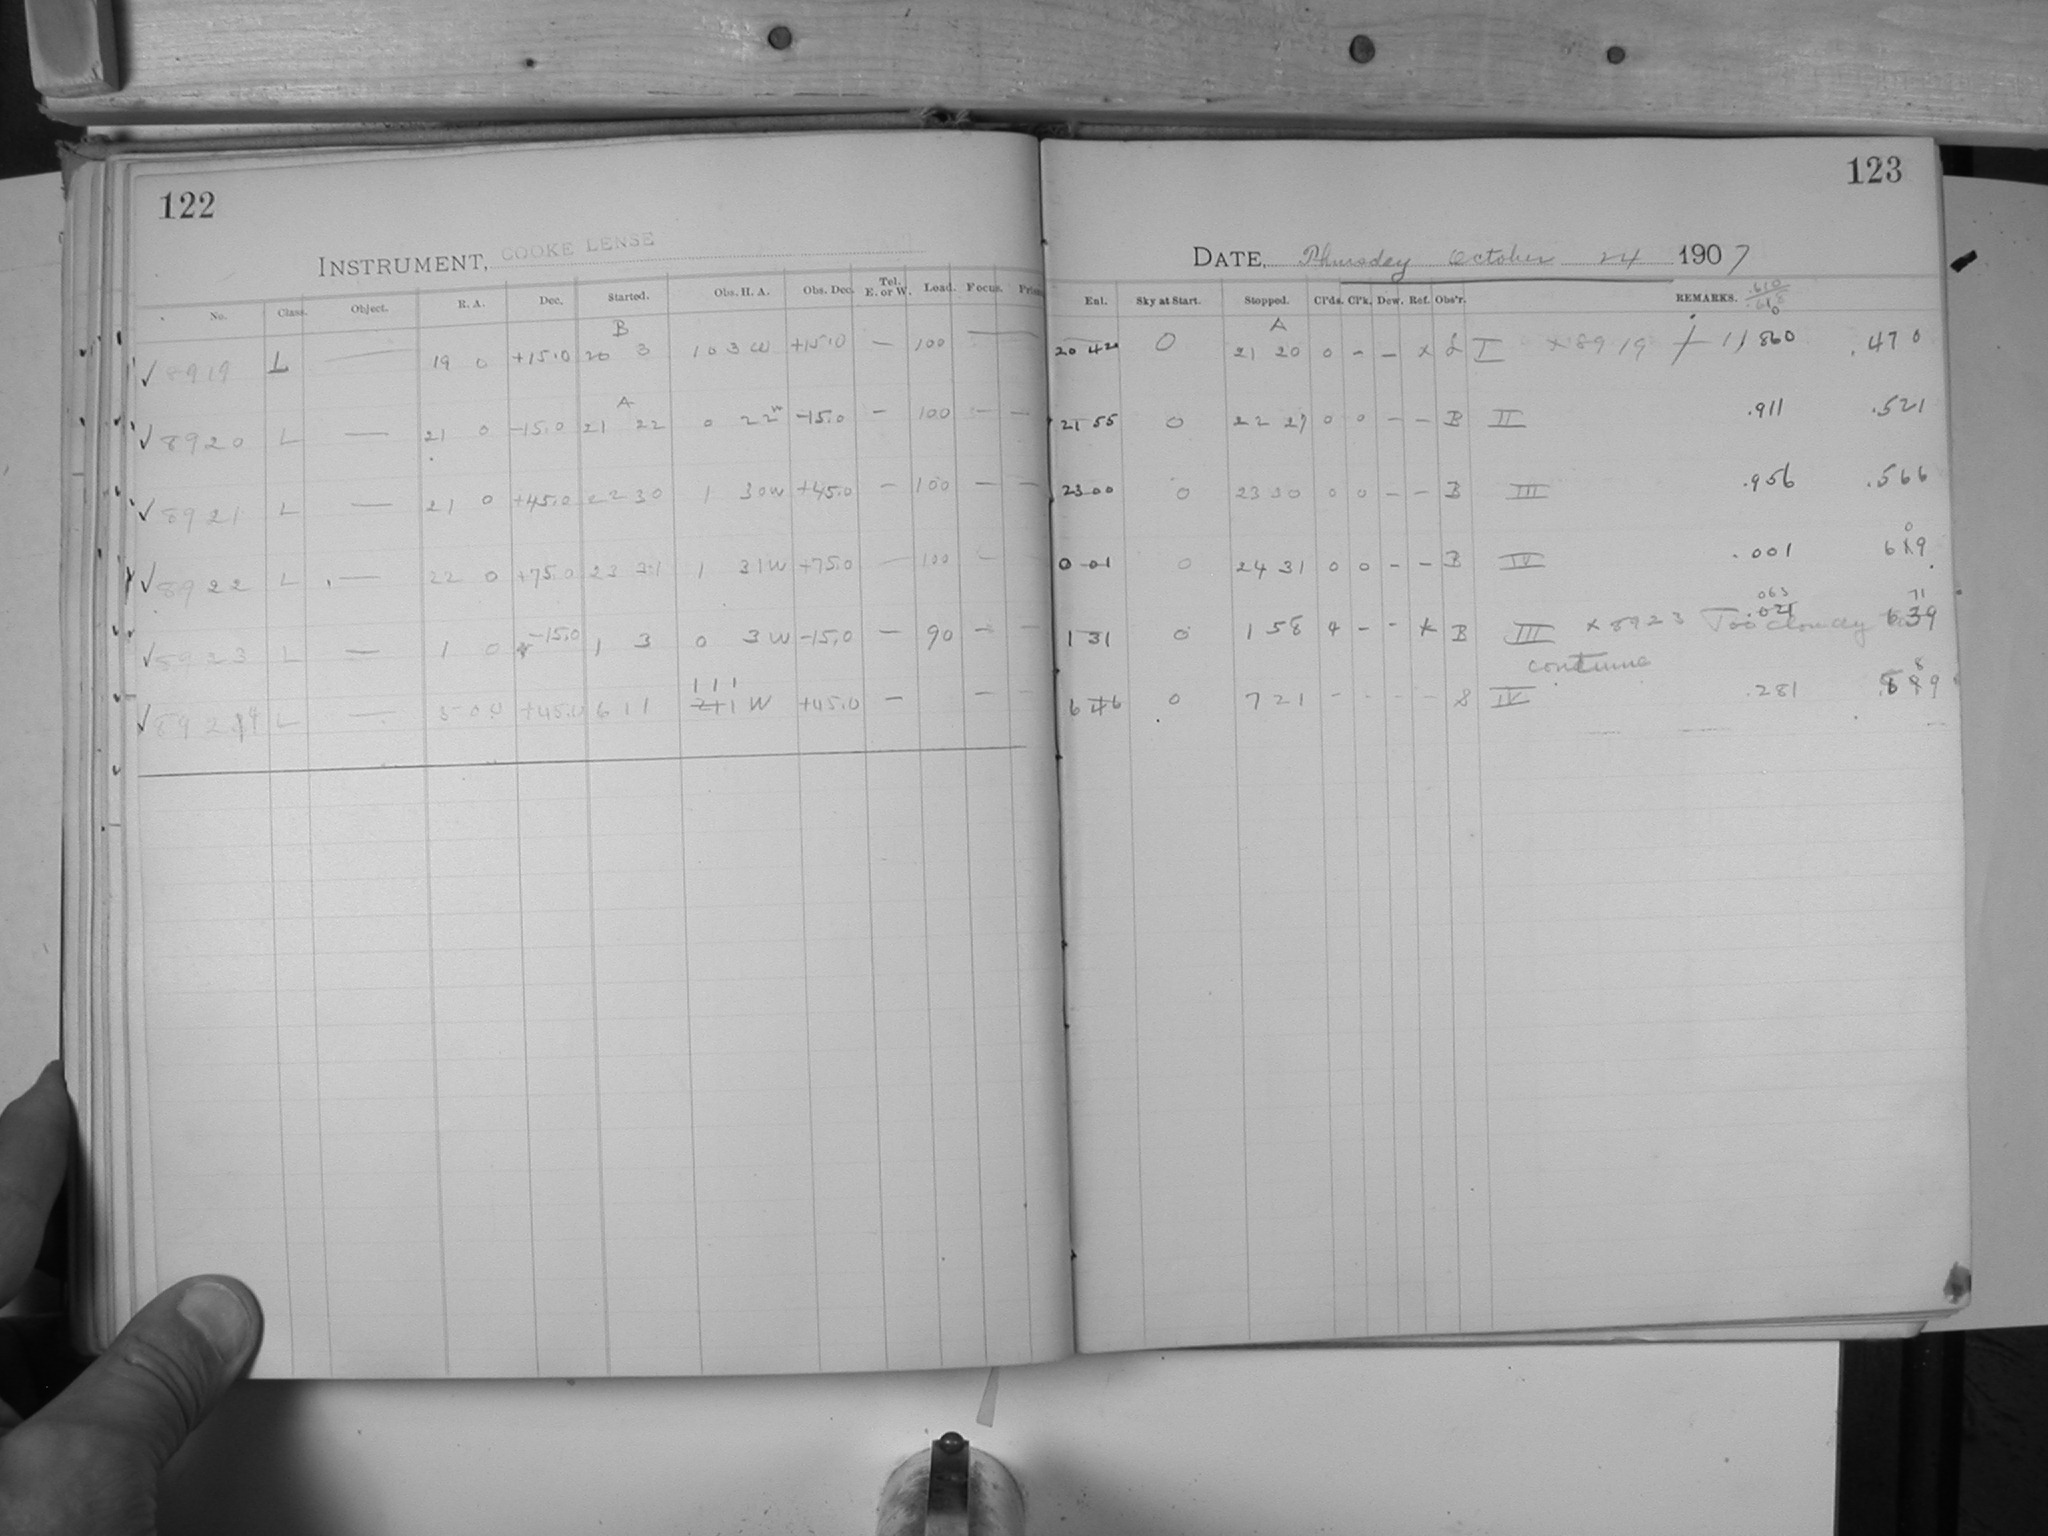 122
INSTRUMENT, COOKE LENSE
No. Class. Object. R. A. Dec. Started. Obs. H. A. Obs. Dec. Tel. E. or W. Load. Focus. Prism
B
✓ 8919 L — 19 0 +15.0 20 3 1 03 W +15.0 — 100 —
A
✓ 8920 L — 21 0 -15.0 21 22 0 22 W -15.0 — 100 — —
✓ 8921 L — 21 0 +45.0 22 30 1 30 W +45.0 — 100 — —
✓ 8922 L — 22 0 +75.0 23 31 1 31 W +75.0 — 100 — —
✓ 8923 L — 1 0 -15.0 1 3 0 3 W -15.0 — 90 — —
1 11
✓ 8924 L — 5 00 +45.0 6 11 W +45.0 — — —
123
DATE, Thursday October 24 1907
Enl. Sky at Start. Stopped. Cl'ds. Cl'k. Dew. Ref. Obs'r. REMARKS. .610
A
20 42 0 21 20 0 — — x L I x 8919 860 .470
21 55 0 22 27 0 0 — — B II .911 .521
23 00 0 23 30 0 0 — — B III .956 .566
0 01 0 24 31 0 0 — — B IV .001 619
063 71
1 31 0 1 58 4 — — x B III x 8923 Too cloudy to .021 639
continue
6 46 0 7 21 — — — — S IV .281